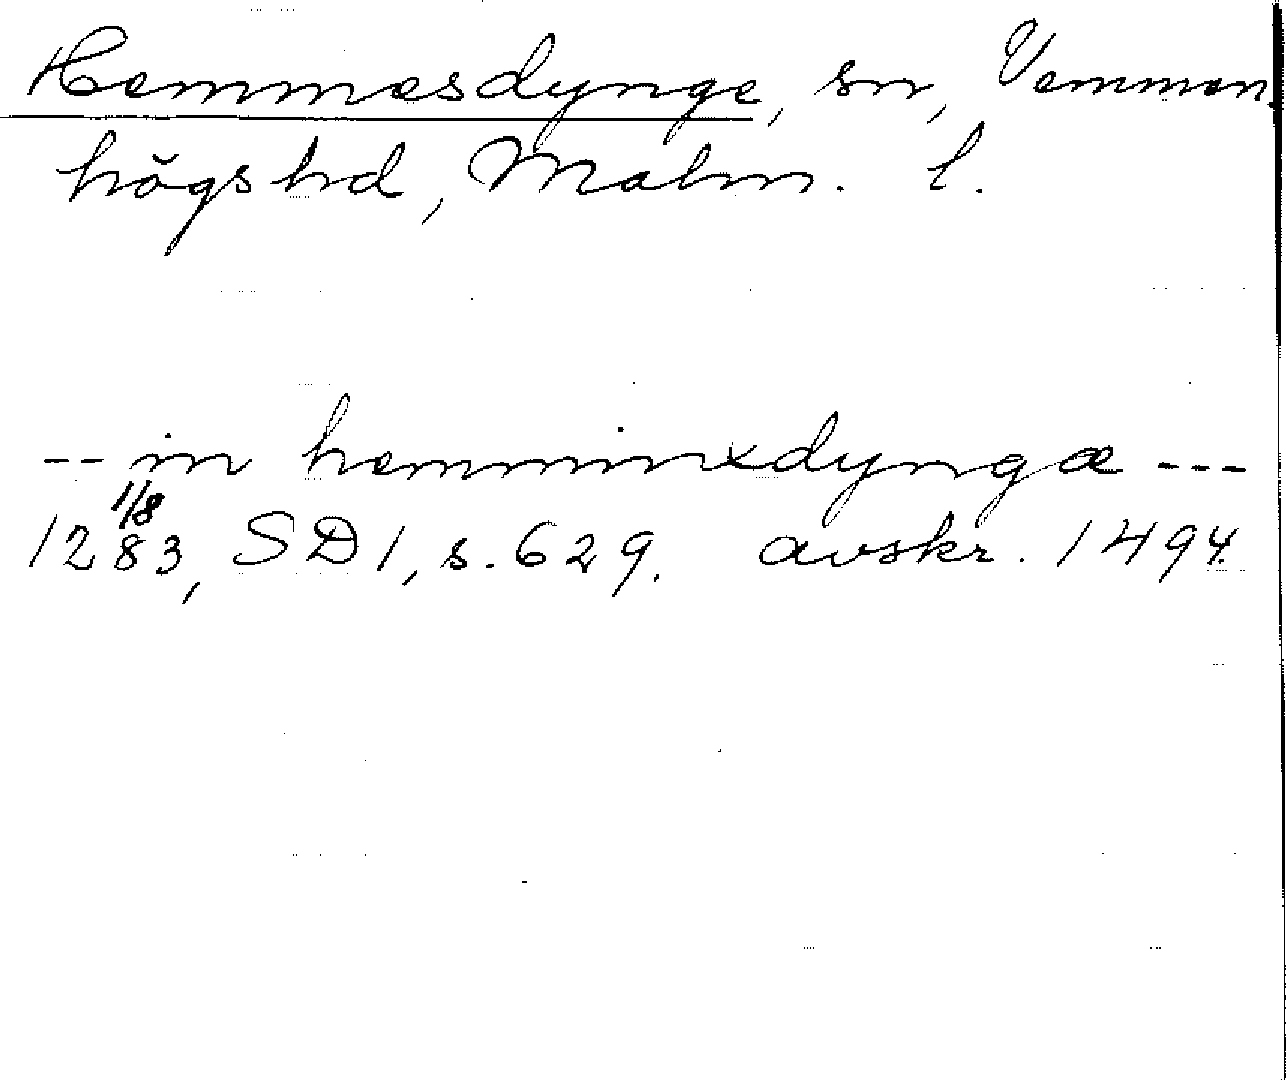 Hemmesdynge, sn, Vemmen
högs hd, Malm. l.
-- in hemminxdyngæ ---
1/8
1283, SD1, s. 629. avskr. 1494.